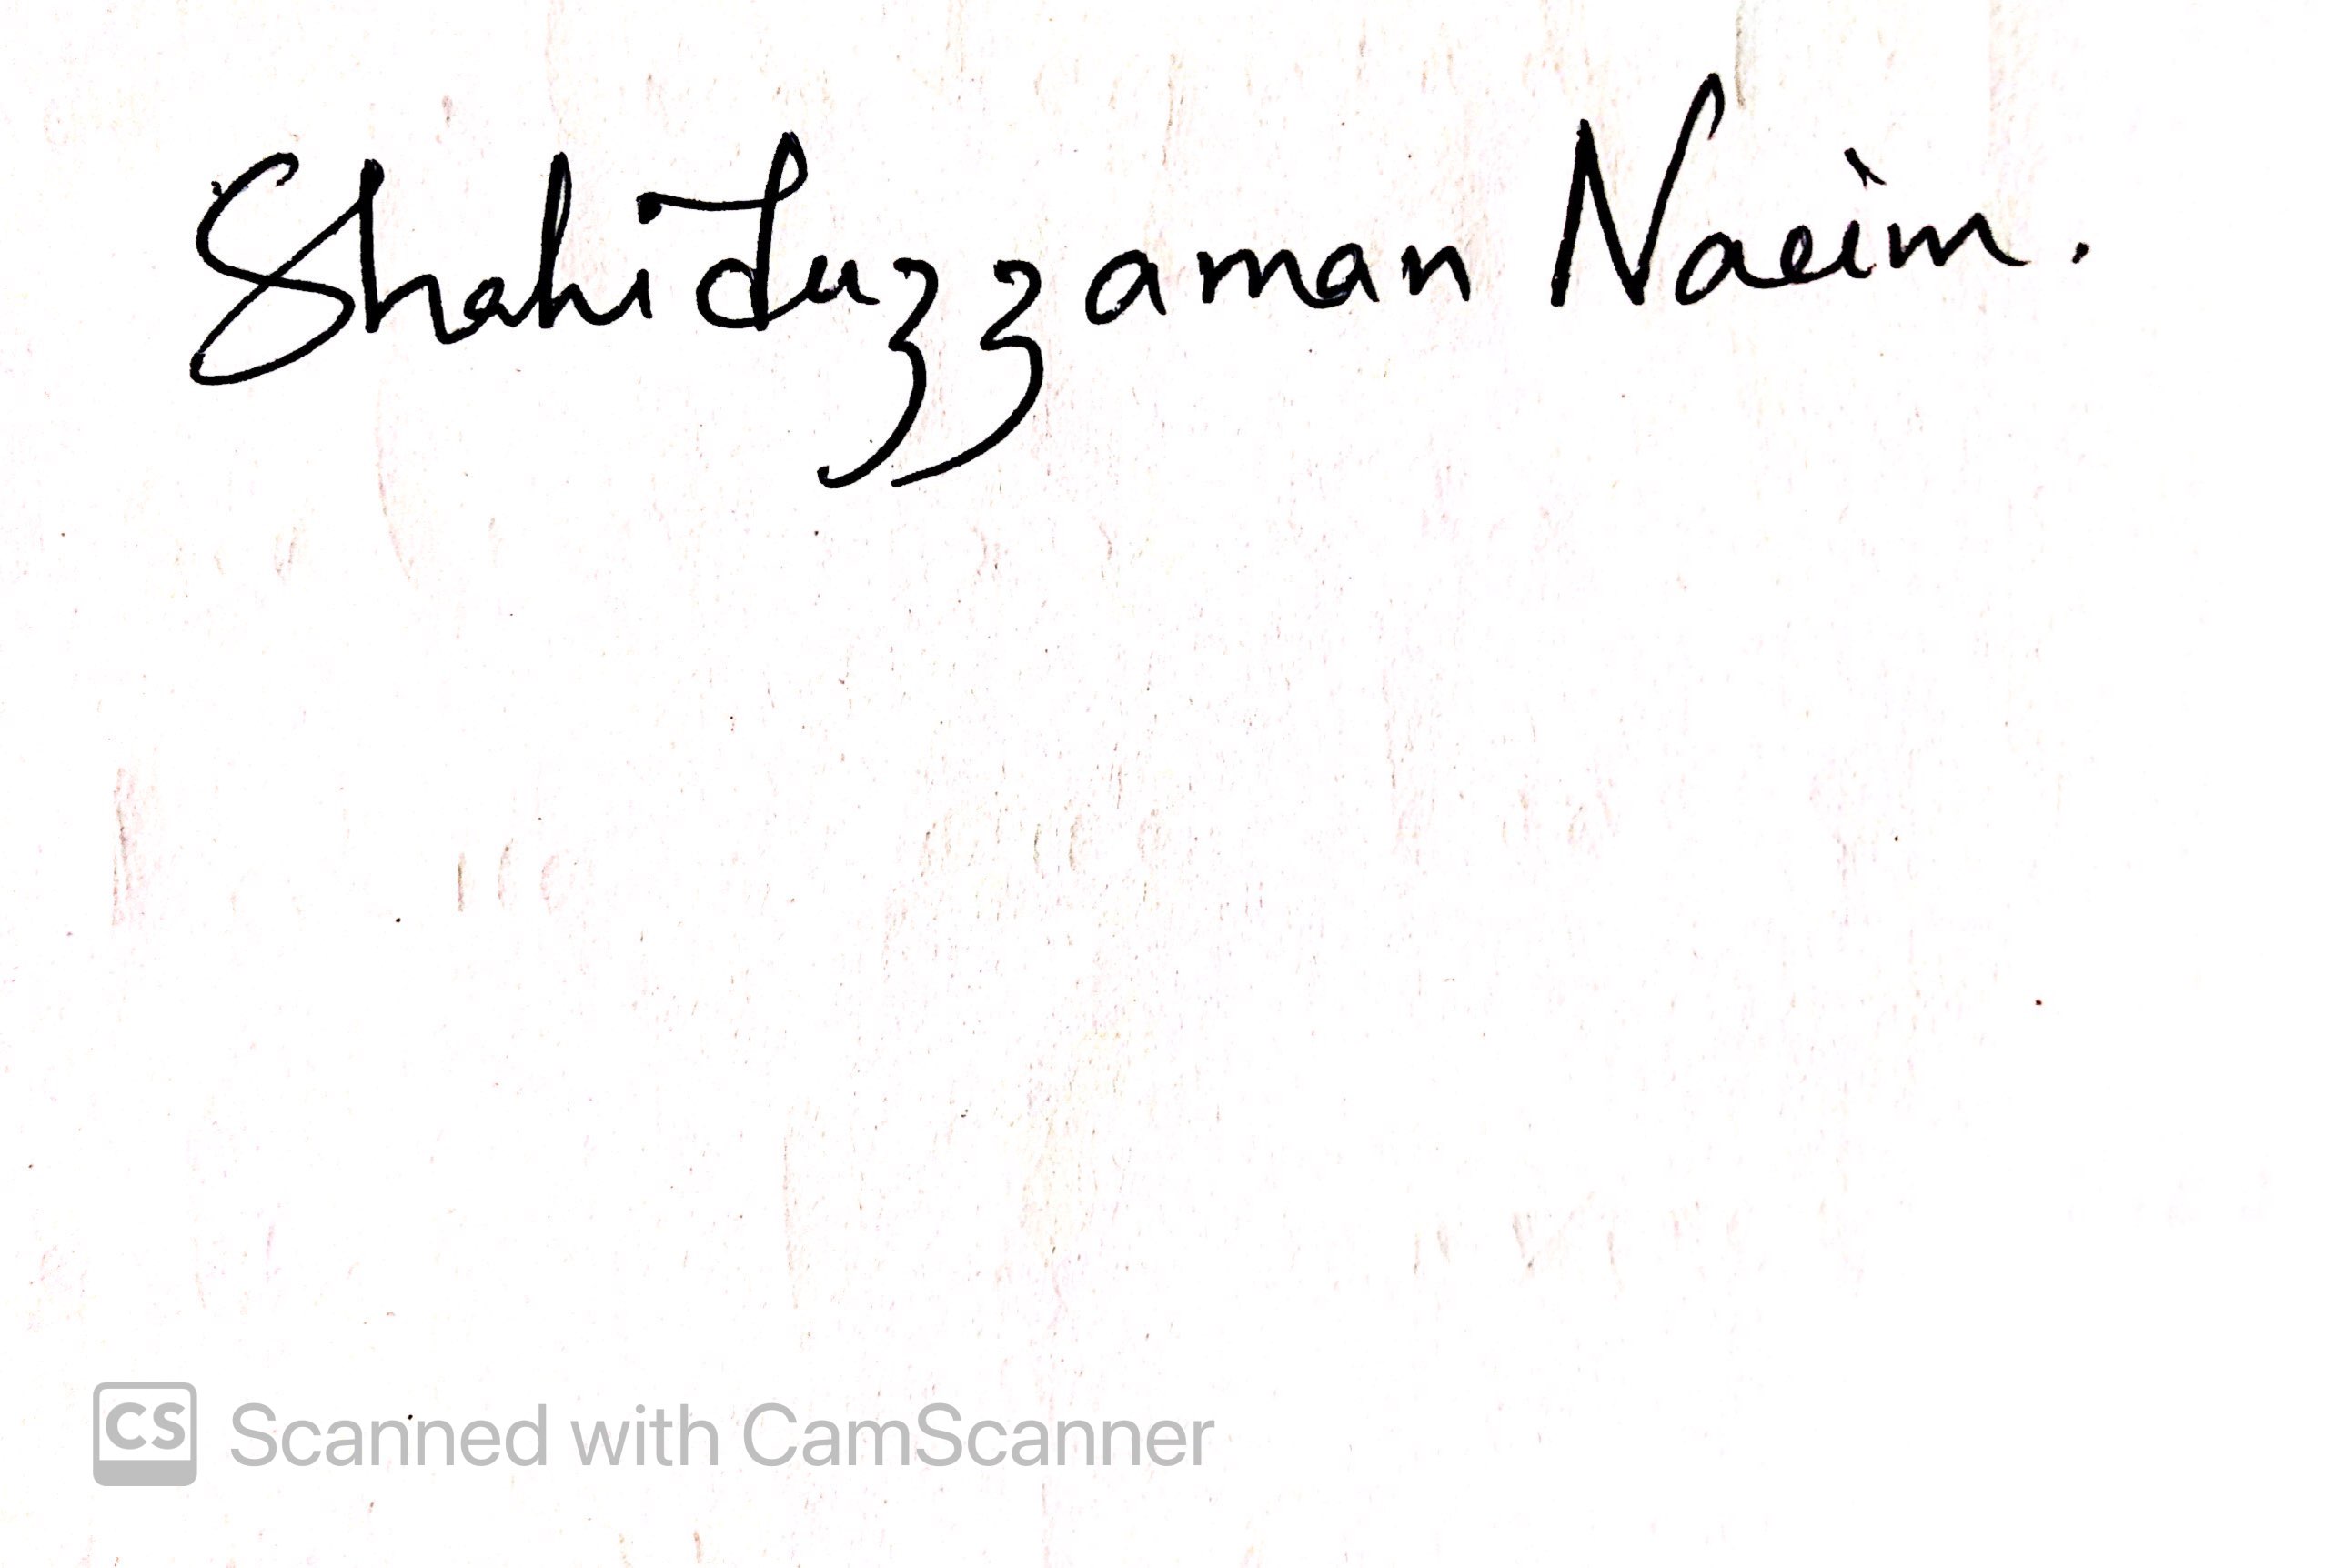 Shahiduzzaman Naeim.
CS Scanned with CamScanner